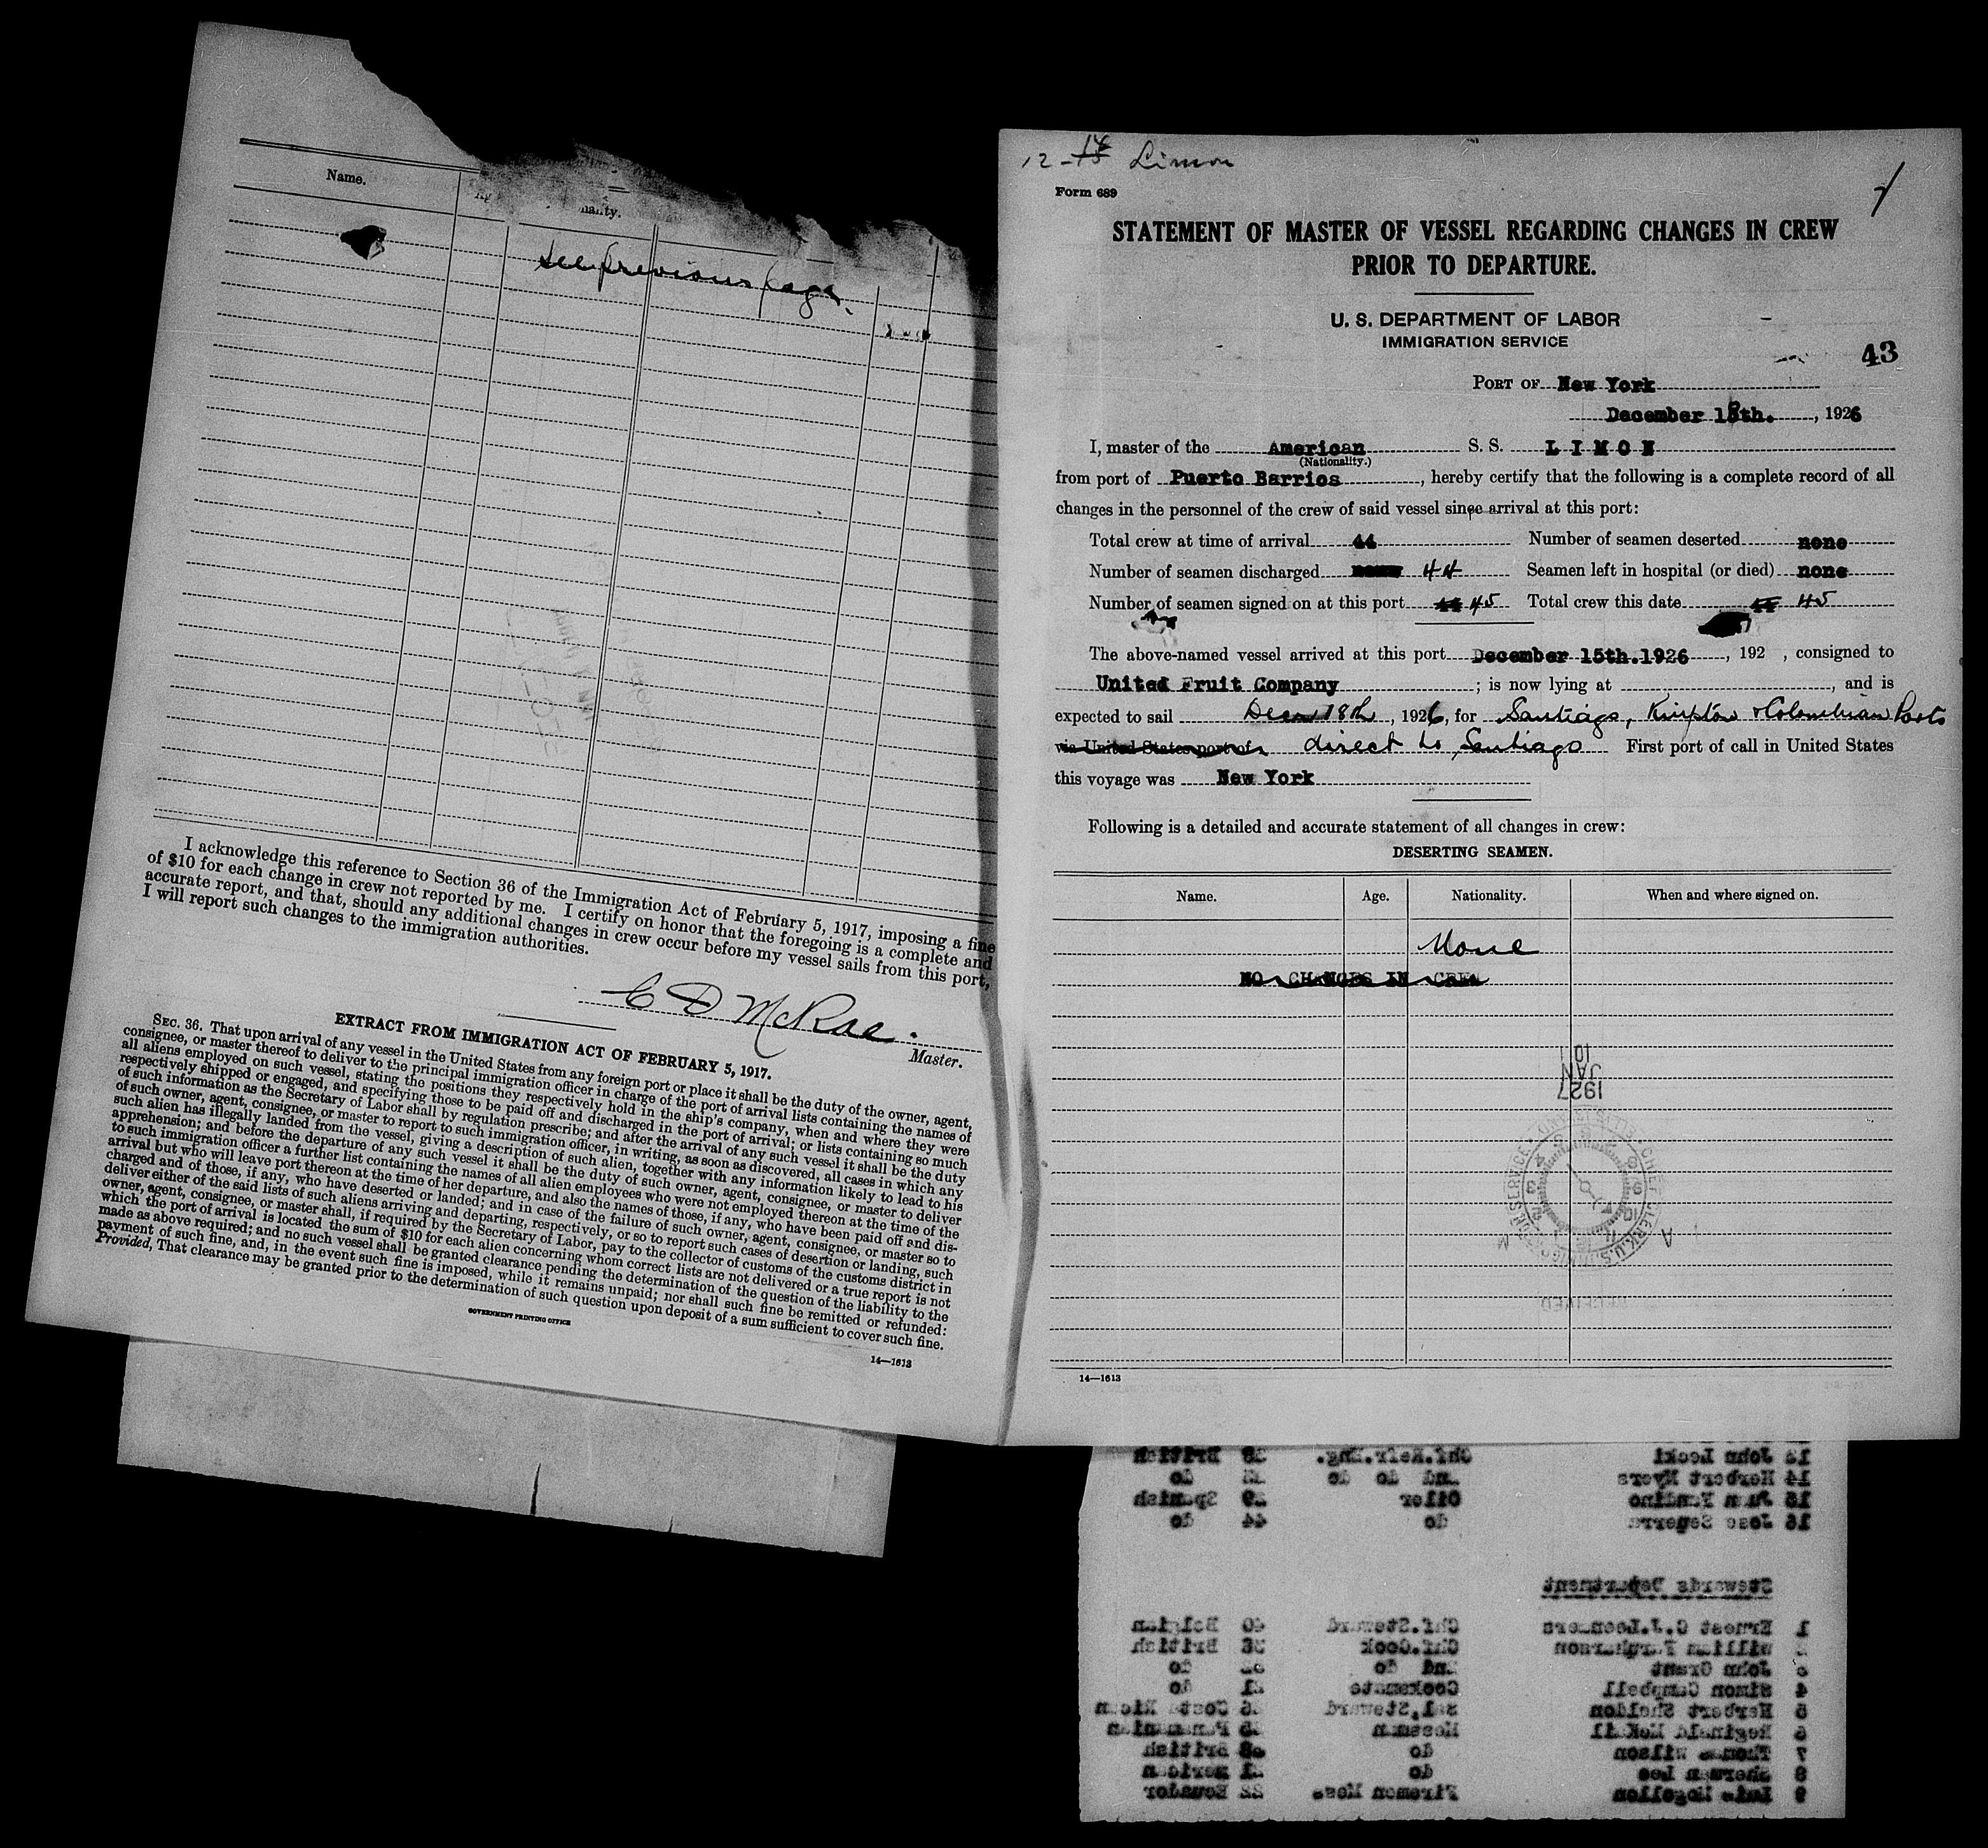 Name.
nality.
See previous page.
I acknowledge this reference to Section 36 of the Immigration Act of February 5, 1917, imposing a fine
of $10 for each change in crew not reported by me. I certify on honor that the foregoing is a complete and
accurate report, and that, should any additional changes in crew occur before my vessel sails from this port,
I will report such changes to the immigration authorities.
C D McRae.
Master.
EXTRACT FROM IMMIGRATION ACT OF FEBRUARY 5, 1917.
SEC. 36. That upon arrival of any vessel in the United States from any foreign port or place it shall be the duty of the owner, agent,
consignee, or master thereof to deliver to the principal immigration officer in charge of the port of arrival lists containing the names of
all aliens employed on such vessel, stating the positions they respectively hold in the ship's company, when and where they were
respectively shipped or engaged, and specifying those to be paid off and discharged in the port of arrival; or lists containing so much
of such information as the Secretary of Labor shall by regulation prescribe; and after the arrival of any such vessel it shall be the duty
of such owner, agent, consignee, or master to report to such immigration officer, in writing, as soon as discovered, all cases in which any
such alien has illegally landed from the vessel, giving a description of such alien, together with any information likely to lead to his
apprehension; and before the departure of any such vessel it shall be the duty of such owner, agent, consignee, or master to deliver
to such immigration officer a further list containing the names of all alien employees who were not employed thereon at the time of the
arrival but who will leave port thereon at the time of her departure, and also the names of those, if any, who have been paid off and dis-
charged and of those, if any, who have deserted or landed; and in case of the failure of such owner, agent, consignee, or master so to
deliver either of the said lists of such aliens arriving and departing, respectively, or so to report such cases of desertion or landing, such
owner, agent, consignee, or master shall, if required by the Secretary of Labor, pay to the collector of customs of the customs district in
which the port of arrival is located the sum of $10 for each alien concerning whom correct lists are not delivered or a true report is not
made as above required; and no such vessel shall be granted clearance pending the determination of the question of the liability to the
payment of such fine, and, in the event such fine is imposed, while it remains unpaid; nor shall such fine be remitted or refunded:
Provided, That clearance may be granted prior to the determination of such question upon deposit of a sum sufficient to cover such fine.
GOVERNMENT PRINTING OFFICE
14—1613
12-18 Limon
Form 689
STATEMENT OF MASTER OF VESSEL REGARDING CHANGES IN CREW
PRIOR TO DEPARTURE.
U. S. DEPARTMENT OF LABOR
IMMIGRATION SERVICE
43
PORT OF New York
December 18th., 1926
I, master of the American S. S. LIMON
(Nationality.)
from port of Puerto Barrios, hereby certify that the following is a complete record of all
changes in the personnel of the crew of said vessel since arrival at this port:
Total crew at time of arrival 44 Number of seamen deserted none
Number of seamen discharged none 44 Seamen left in hospital (or died) none
Number of seamen signed on at this port 44 45 Total crew this date 44 45
The above-named vessel arrived at this port December 15th.1926, 192 , consigned to
United Fruit Company; is now lying at , and is
expected to sail Decem 18th, 1926, for Santiago, Kingston & Colombian Ports
via United States port of direct to Santiago First port of call in United States
this voyage was New York
Following is a detailed and accurate statement of all changes in crew:
DESERTING SEAMEN.
Name. Age. Nationality. When and where signed on.
None
NO CHANGES IN CREW
1927
JAN
10
14—1613
13 John Lecki Chf.Refr.Eng. British
14 Herbert Myers 2nd do do do
15 Juan Fandino Oiler 29 Spanish
16 Jose Seyerra do 44 do
Stewards Department
1 Ernest C.J.Leenders Chf.Steward 40 Belgian
2 William Farquharson Chf.Cook 36 British
3 John Grant 2nd do do
4 Simon Campbell Cooksmate 21 do
5 Herbert Sheldon Sal.Steward 26 Costa Rican
6 Reginald McKell Messman Panamanian
7 Thomas Wilson do British
8 Sherman Lee do 21 American
9 Luis Mogollon Firemen Mess 22 Ecuador